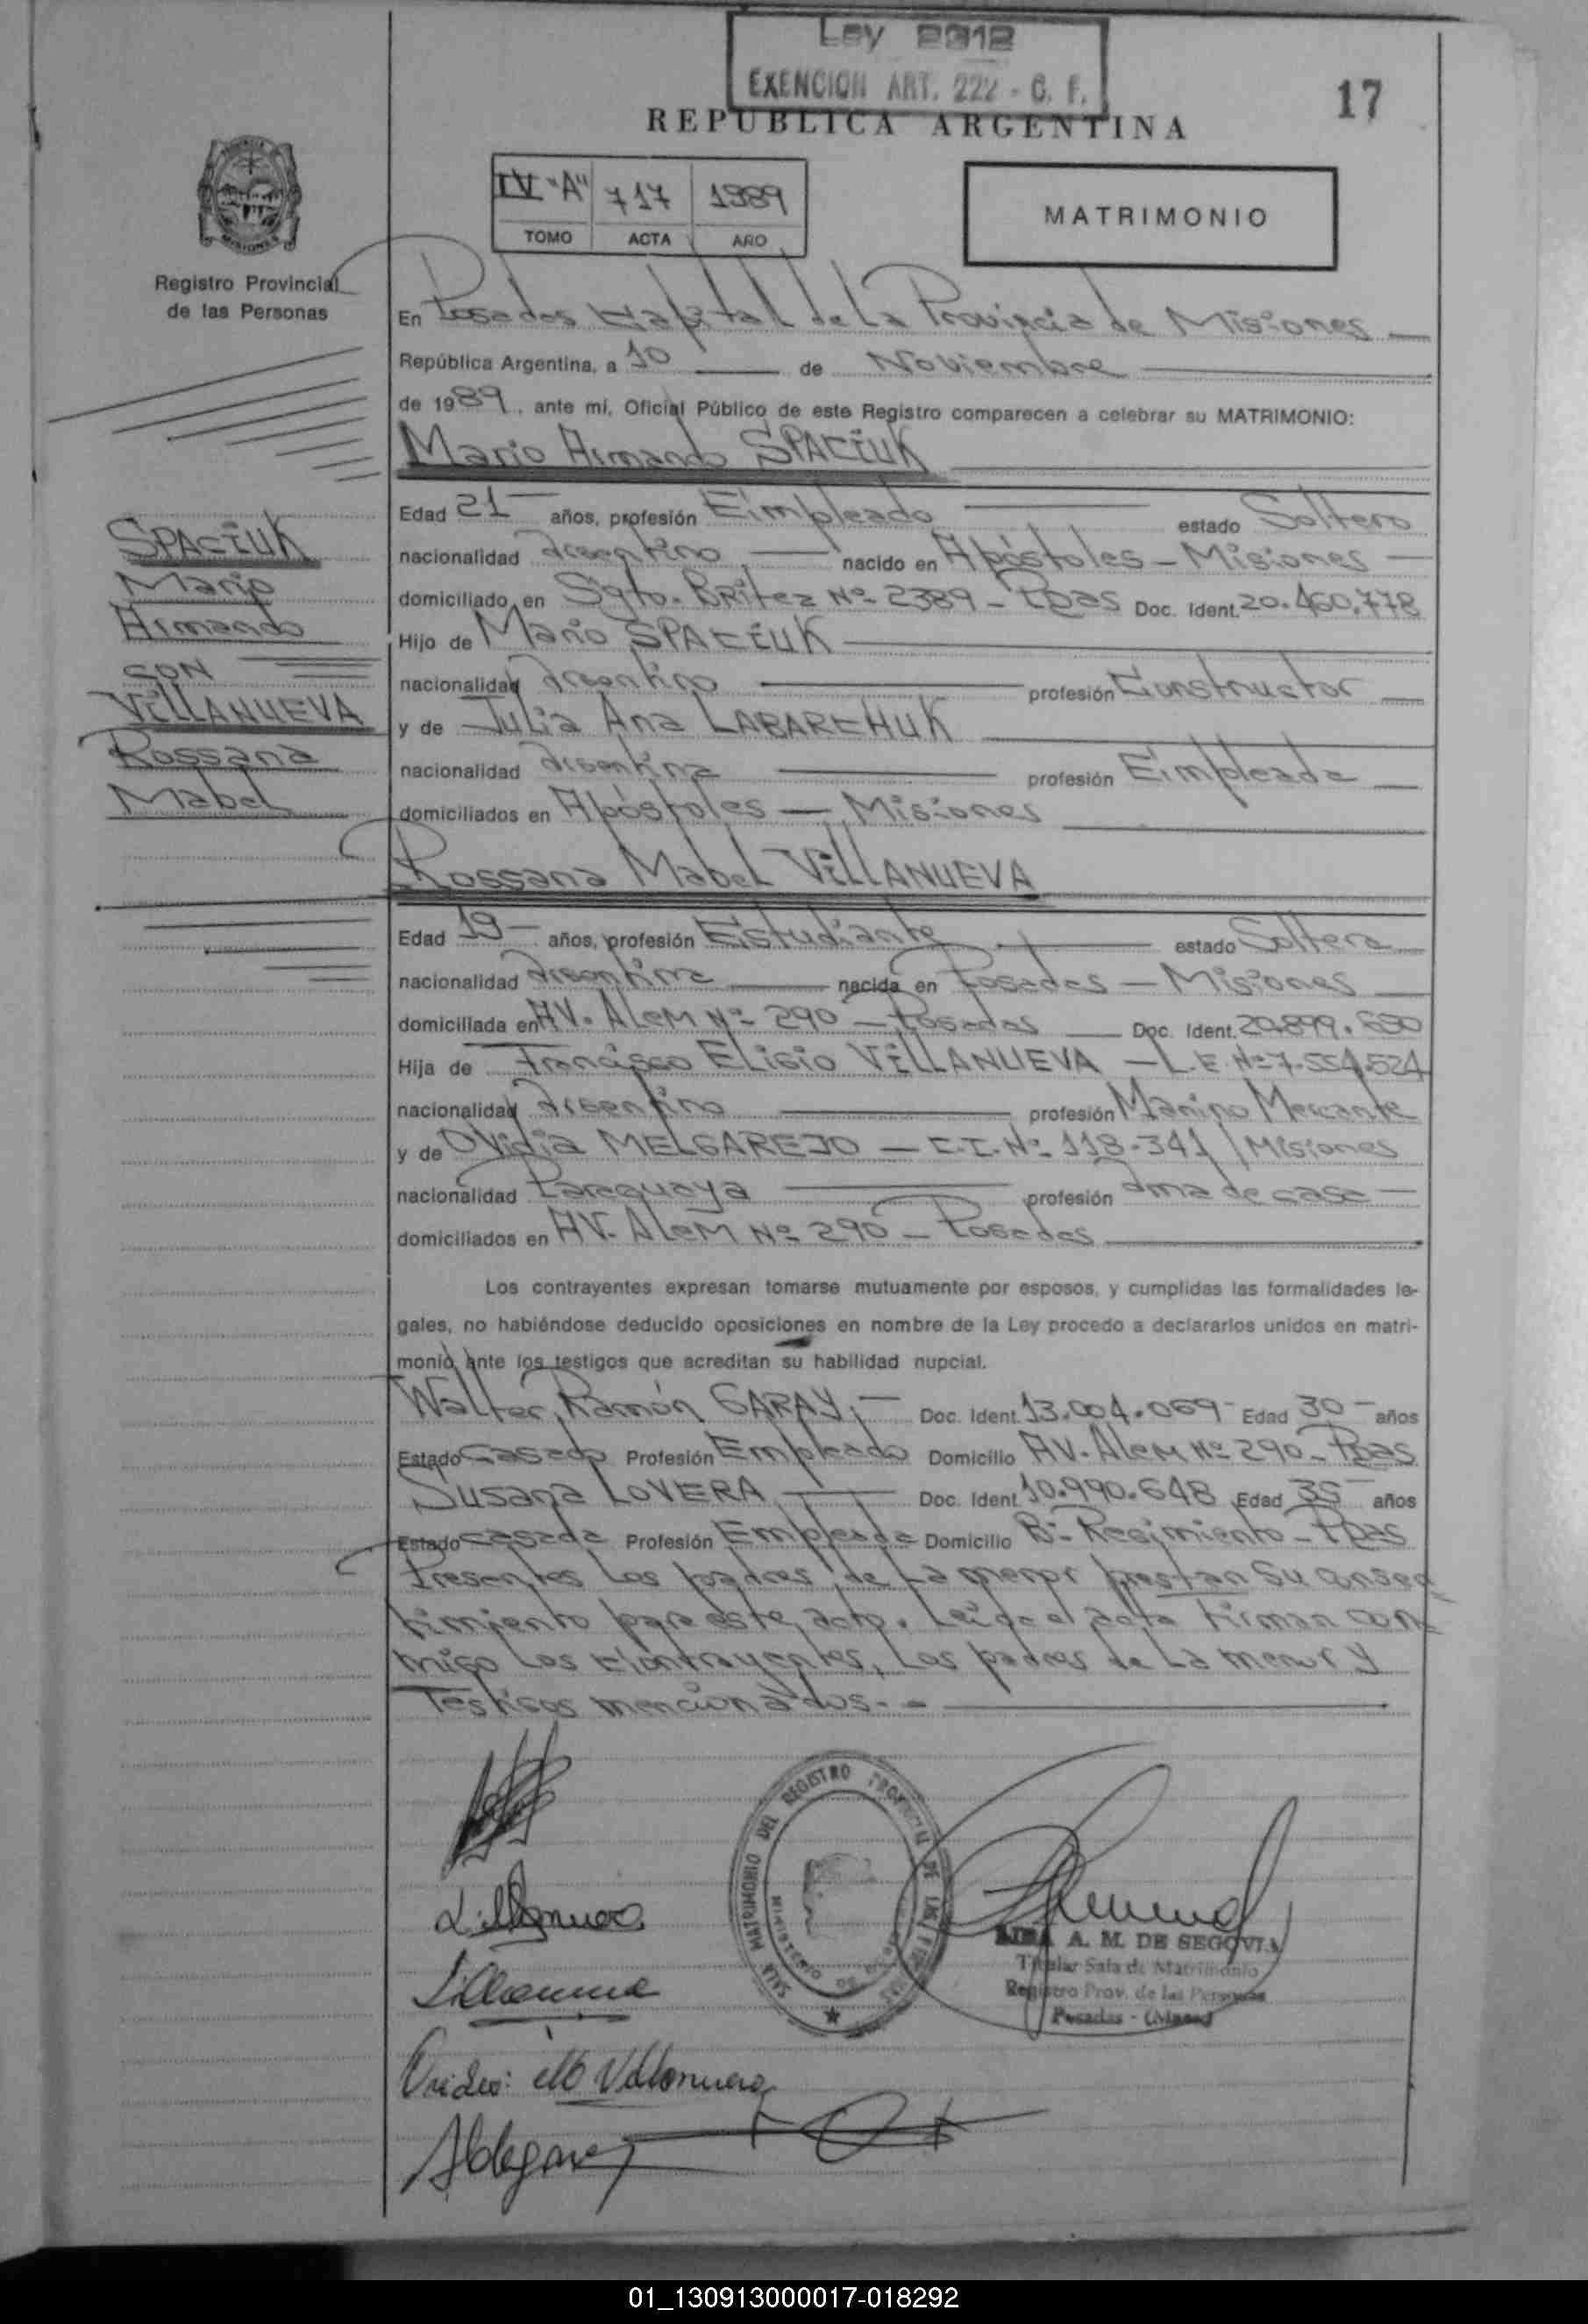 Ley 2312
EXENCION ART. 222 - C. F.
17
REPUBLICA ARGENTINA
IV "A" 717 1989
TOMO ACTA AÑO
MATRIMONIO
Registro Provincial
de las Personas
En Posadas Capital de la Provincia de Misiones
República Argentina, a 10 de Noviembre
de 1989, ante mi, Oficial Público de este Registro comparecen a celebrar su MATRIMONIO:
Mario Armando SPACIUK
SPACIUK
Mario
Armando
CON
VILLANUEVA
Rossana
Mabel
Edad 21 años, profesión Empleado estado Soltero
nacionalidad Argentino nacido en Apóstoles - Misiones
domiciliado en Sgto. Britez Nº 2389 - Pdas Doc. Ident. 20.460.778
Hijo de Mario SPACIUK
nacionalidad Argentino profesión Constructor
y de Julia Ana LABARCHUK
nacionalidad Argentina profesión Empleada
domiciliados en Apóstoles - Misiones
Rossana Mabel VILLANUEVA
Edad 19 años, profesión Estudiante estado Soltera
nacionalidad Argentina nacida en Posadas - Misiones
domiciliada en AV. Alem Nº 290 - Posadas Doc. Ident. 20.899.650
Hija de Francisco Elisio VILLANUEVA - L.E. Nº 7.554.524
nacionalidad Argentino profesión Marino Mercante
y de Ovidia MELGAREJO - C.I. Nº 118.341 / Misiones
nacionalidad Paraguaya profesión ama de casa
domiciliados en AV. Alem Nº 290 - Posadas
Los contrayentes expresan tomarse mutuamente por esposos, y cumplidas las formalidades le-
gales, no habiéndose deducido oposiciones en nombre de la Ley procedo a declararlos unidos en matri-
monio ante los testigos que acreditan su habilidad nupcial.
Walter Ramón GARAY, Doc. Ident. 13.004.069 Edad 30 años
Estado Casado Profesión Empleado Domicilio AV. Alem Nº 290 - Pdas
Susana LOVERA Doc. Ident. 10.990.648 Edad 35 años
Estado casada Profesión Empleada Domicilio Bº Regimiento - Pdas
Presentes los padres de la menor prestan su consen
timiento para este acto. Leída el acta firman con-
migo los contrayentes, los padres de la menor y
Testigos mencionados.-
SALA MATRIMONIO DEL REGISTRO PROVINCIAL DE LAS PERSONAS
MINISTERIO DE
A. M. DE SEGOVIA
Titular Sala de Matrimonio
Registro Prov. de las Personas
Posadas - (Mnes)
Villanueva
01_130913000017-018292